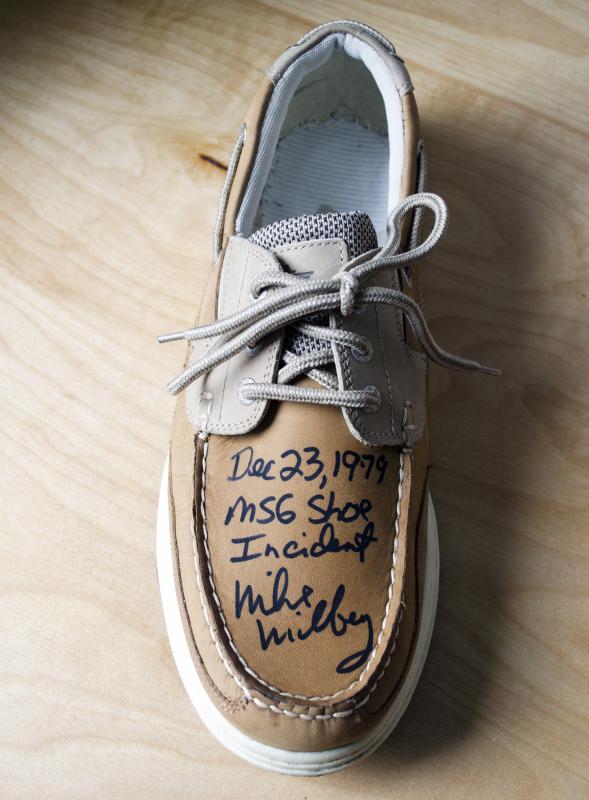 Dec 23, 1979
MSG Shoe
Incident
Mike
Milbury